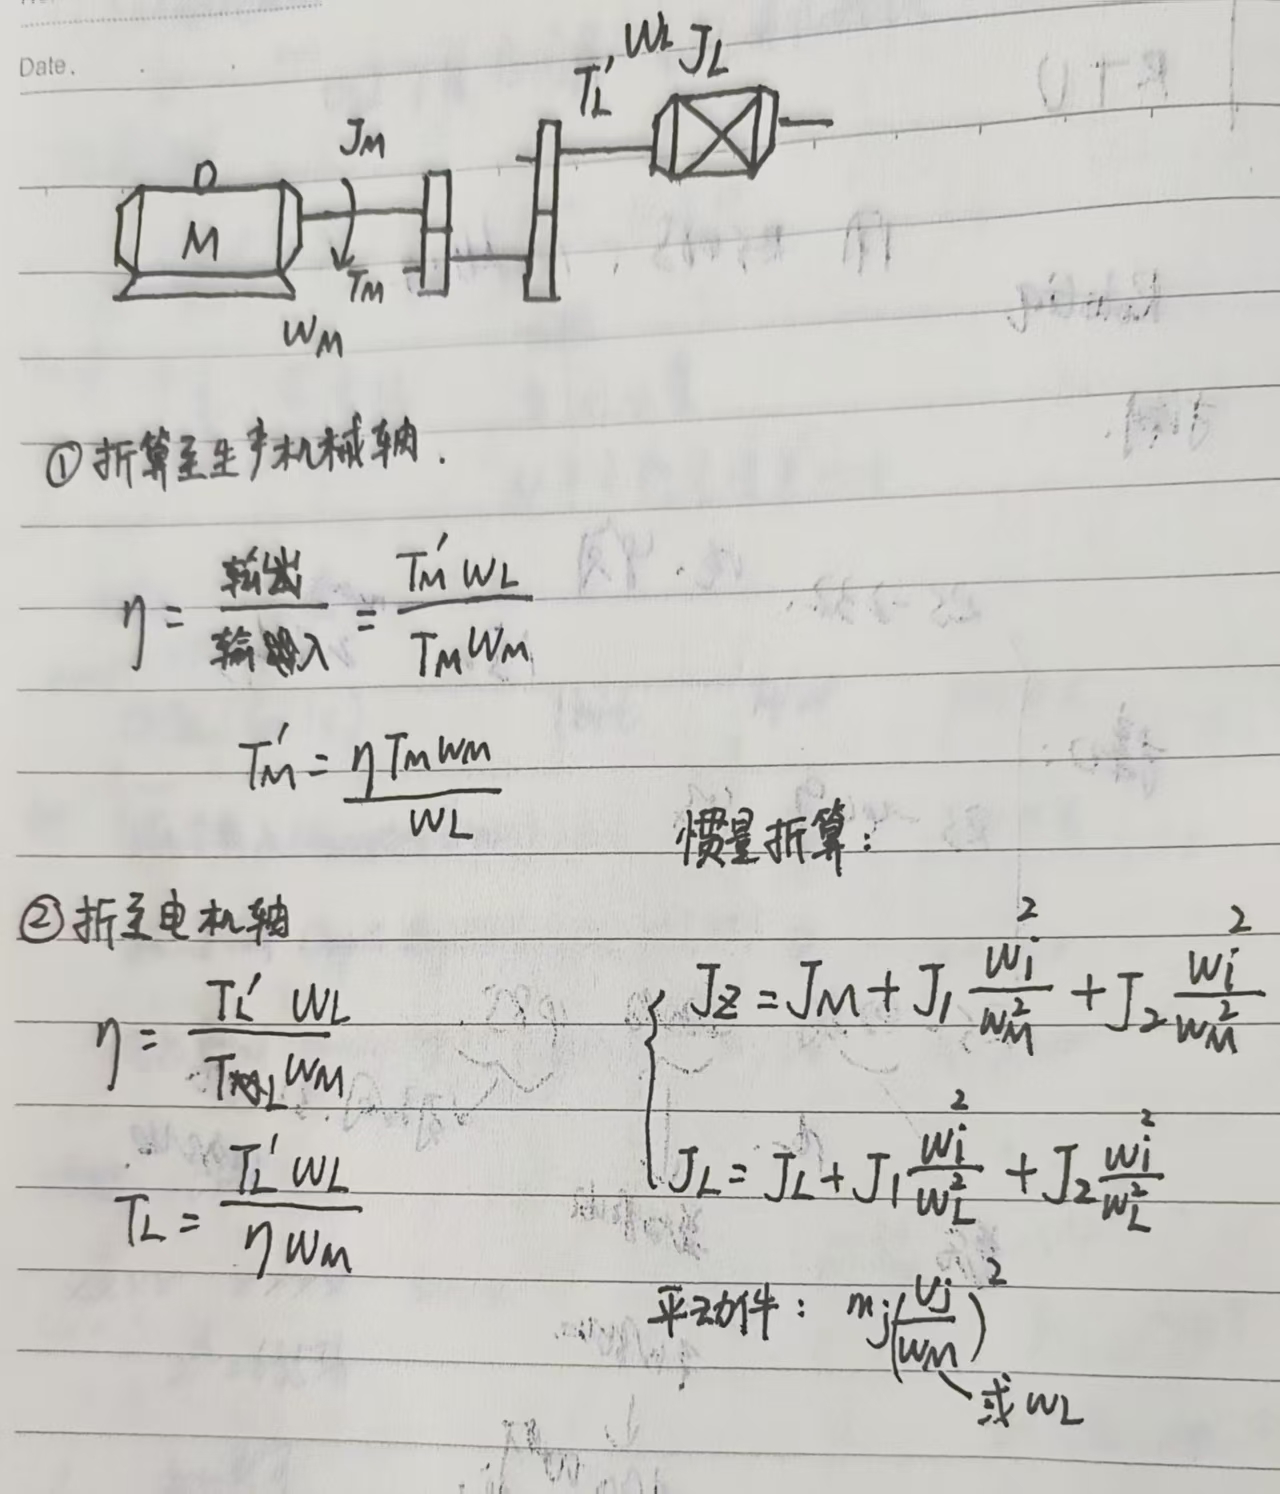 Date.
T_L' W_L J_L
J_M
M
T_M
W_M
① 折算至生产机械轴.
η = 输出/输入 = T_M' W_L / T_M W_M
T_M' = η T_M W_M / W_L
惯量折算:
② 折至电机轴
η = T_L' W_L / T_L W_M
J_Z = J_M + J_1 W_i^2/W_M^2 + J_2 W_i^2/W_M^2
T_L = T_L' W_L / η W_M
J_L = J_L + J_1 W_i^2/W_L^2 + J_2 W_i^2/W_L^2
平动件: m_j (v_j/W_M)^2
或 W_L